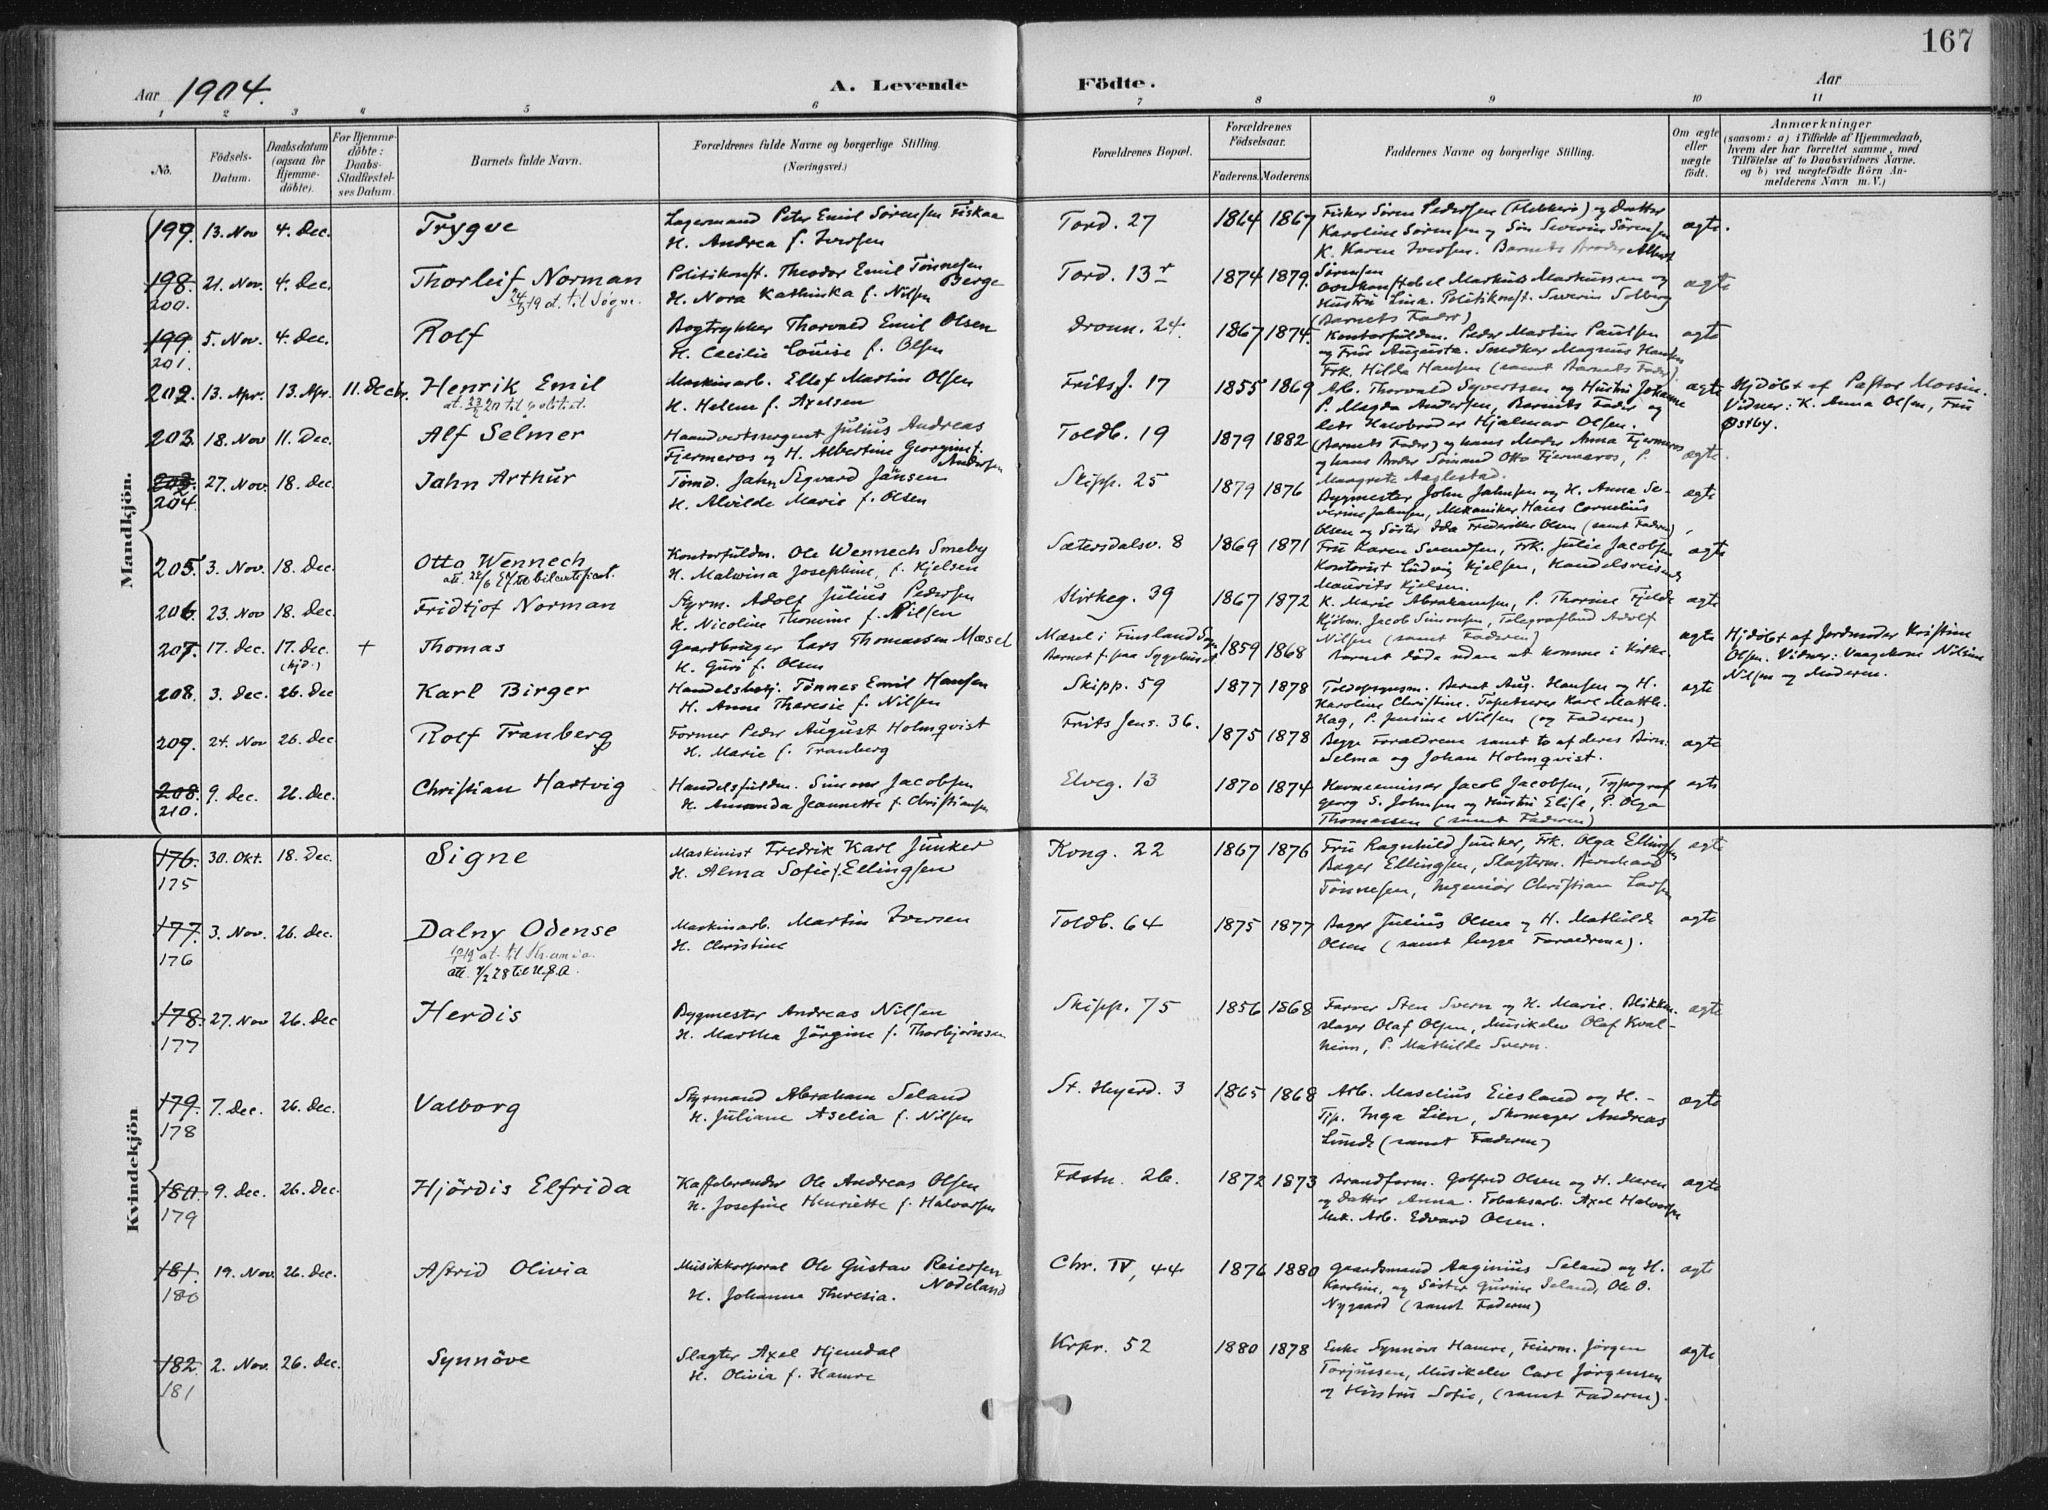 167
Aar 1904. A. Levende Födte. Aar
1 2 3 4 5 6 7 8 9 10 11
No.
Födsels-Datum.
Daabsdatum (ogsaa for Hjemme-döbte).
For Hjemme-döbte: Daabs-Stadfæstel-ses Datum.
Barnets fulde Navn.
Forældrenes fulde Navne og borgerlige Stilling.
(Næringsvei.)
Forældrenes Bopæl.
Forældrenes Födselsaar.
Faderens. Moderens.
Faddernes Navne og borgerlige Stilling.
Om ægte eller uægte födt.
Anmærkninger
(saasom: a) i Tilfælde af Hjemmedaab,
hvem der har forrettet samme, med
Tilföielse af to Daabsvidners Navne.
og b) ved uægtefödte Börn An-
melderens Navn m. V.)
Mandkjön.
199. 13. Nov 4. Dec. Trygve Lagermand Peter Emil Sørensen Fiskaa
H. Andrea f. Iversen
Tord. 27 1864 1867 Fisker Sören Pedersen (Flekkerö) og Datter
Karoline Sørensen og Søn Severin Sørensen
K. Karen Iversen. Barnets Broder Albert
Sörensen
ægte.
198. 200. 21. Nov. 4. Dec. Thorleif Norman
24/3 19 at. til Søgne.
Politikonst. Theodor Emil Tönnesen Berge
H. Nora Kathinka f. Nilsen
Tord. 13 1874 1879. Markus Markussen og
Hustru Lina. Politikonst. Severin Solberg
(Barnets Fader)
ægte
199. 201. 5. Nov. 4. Dec. Rolf Bogtrykker Thorvald Emil Olsen
H. Cecilie Louise f. Olsen
Dronn. 24. 1867 1874. Kontorfuldm. Peder Martin Paulsen
og Frue Augusta. Snedker Magnus Hansen
Frk. Hilda Hansen (samt Barnets Fader)
ægte
202. 13. Apr. 13. Apr. 11. Decbr. Henrik Emil
Maskinarb. Ellef Martin Olsen
H. Helene f. Axelsen
Frits J. 17 1855 1869 Arb. Thorvald Syvertsen og Hustru Johanne
P. Magda Andersen, Barnets Fader og
Halvbroder Hjalmar Olsen.
ægte Hjdøbt af Pastor Mossin.
Vidner: K. Anna Olsen, Fru
Østby.
203. 18. Nov 11. Dec. Alf Selmer Haandverkssergent Julius Andreas
Fjermeros og H. Albertine Georgine f. Andersen
Toldb. 19 1879 1882 (Barnets Fader) og hans Moder Anna Fjermeros
og hans Broder Sömand Otto Fjermeros, P.
Margrete Aaglestad.
ægte
203. 204. 27. Nov. 18. Dec. Jahn Arthur Tømd. Jahn Sigvard Jansen
H. Alvilde Marie f. Olsen
Skipp. 25 1879 1876 Bygmester John Johnsen og H. Anna Se-
verine Johnsen, Mekaniker Hans Cornelius
Olsen og Söster Ida Frederikke Olsen (samt Faderen)
ægte
205. 3. Nov. 18. Dec. Otto Wennech
Kontorfuldm. Ole Wennech Smeby
H. Malvina Josephine, f. Kjelsen
Sætersdalsv. 8 1869 1871 Fru Karen Svendsen, Frk. Julie Jacobsen
Kontorist Ludvig Kjelsen, Handelsreisende
Maurits Kjelsen.
ægte
206 23. Nov 18. Dec. Fridtjof Norman Styrm. Adolf Julius Pedersen
H. Nicoline Thomine f. Nilsen
Kirkeg. 39 1867 1872 K. Marie Abrahamsen, P. Thorine Fjelde
Kjöbm. Jacob Simonsen, Telegrafbud Adolf
Nilsen (samt Faderen)
ægte
207. 17. Dec. 17. Dec. (hjd.) + Thomas Gaardbruger Lars Thomassen Mæsel
H. Guri f. Olsen
Mæsel i Finsland Sogn
Barnet f. paa Sygehuset
1859 1868 Barnet döde uden at komme i Kirke.
ægte Hjdøbt af Jordmoder Kristine
Olsen. Vidner: Vaagekone Nilsine
Nilsen og Moderen.
208. 3. Dec. 26. Dec Karl Birger Handelsbetj. Tönnes Emil Hansen
H. Anne Theresie f. Nilsen
Skipp. 59 1877 1878 Toldopsynsm. Bernt Aug. Hansen og H.
Karoline Christine. Tapetserer Karl Matth.
Hag, P. Jensine Nilsen (og Faderen)
ægte
209. 24. Nov 26. Dec Rolf Tranberg Former Peder August Holmqvist
H. Marie f. Tranberg
Frits Jens. 36. 1875 1878 Begge Forældrene samt to af deres Börn.
Selma og Johan Holmqvist.
ægte
208. 210. 9. Dec. 26. Dec. Christian Hartvig Handelsfuldm. Simon Jacobsen
H. Amanda Jeannette f. Christiansen
Elveg. 13 1870 1874 Havnecasserer Jacob Jacobsen, Typograf
Georg S. Johnsen og Hustru Elise, P. Olga
Thomassen (samt Faderen)
ægte
Kvindekjön
176. 175 30. Okt. 18. Dec. Signe Maskinist Fredrik Karl Junker
H. Alma Sofie f. Ellingsen
Kong. 22 1867 1876 Fru Ragnhild Junker, Frk. Olga Ellingsen
Bager Ellingsen, Slagterm. Bernhard
Tönnesen, Ingeniör Christian Larsen
ægte
177. 176 3. Nov. 26. Dec. Dalny Odense
at. til Kr.ania.
att. 7/2 28 til U.S.A.
Maskinarb. Martin Iversen
H. Christine
Toldb. 64 1875 1877 Bager Julius Olsen og H. Mathilde
Olsen (samt begge Forældrene).
ægte
178. 177 27. Nov 26. Dec Herdis Bygmester Andreas Nilsen
H. Martha Jörgine f. Thorbjørnsen
Skipp. 75 1856 1868 Farver Sten Svern og H. Marie. Blikken-
slager Olaf Olsen, Musikelev Olaf Kval-
heim, P. Mathilde Svern.
ægte
179. 178 7. Dec. 26. Dec. Valborg Styrmand Abraham Seland
H. Juliane Aselia f. Nilsen
St. Hegerd. 3 1865 1868 Arb. Maselius Eiesland og H. -
Tjp. Inga Lien, Skomager Andreas
Lunde (samt Faderen)
ægte
180. 179 9. Dec. 26. Dec. Hjördis Elfrida Kaffebrænder Ole Andreas Olsen
H. Josefine Henriette f. Halvorsen
Fæstn. 26. 1872 1873 Brandform. Gotfred Olsen og H. Maren
og Datter Anna. Tobaksarb. Axel Halvorsen
Mek. Arb. Edvard Olsen.
ægte
181. 180 19. Nov. 26. Dec. Astrid Olivia Musikkorporal Ole Gustav Reiersen Nodeland
H. Johanne Theresia.
Chr. IV, 44 1876 1880 Gaardmand Aaginius Seland og H.
Karoline, og Söster Gurine Seland, Ole O.
Nygaard (samt Faderen)
ægte
182 181 2. Nov. 26. Dec. Synnöve Slagter Axel Hjemdal
H. Olivia f. Hamre
Krpr. 52 1880 1878 Enke Synnöve Hamre, Feierm. Jörgen
Torjussen, Musikelev Carl Jörgensen
og Hustru Sofie, (samt Faderen).
ægte